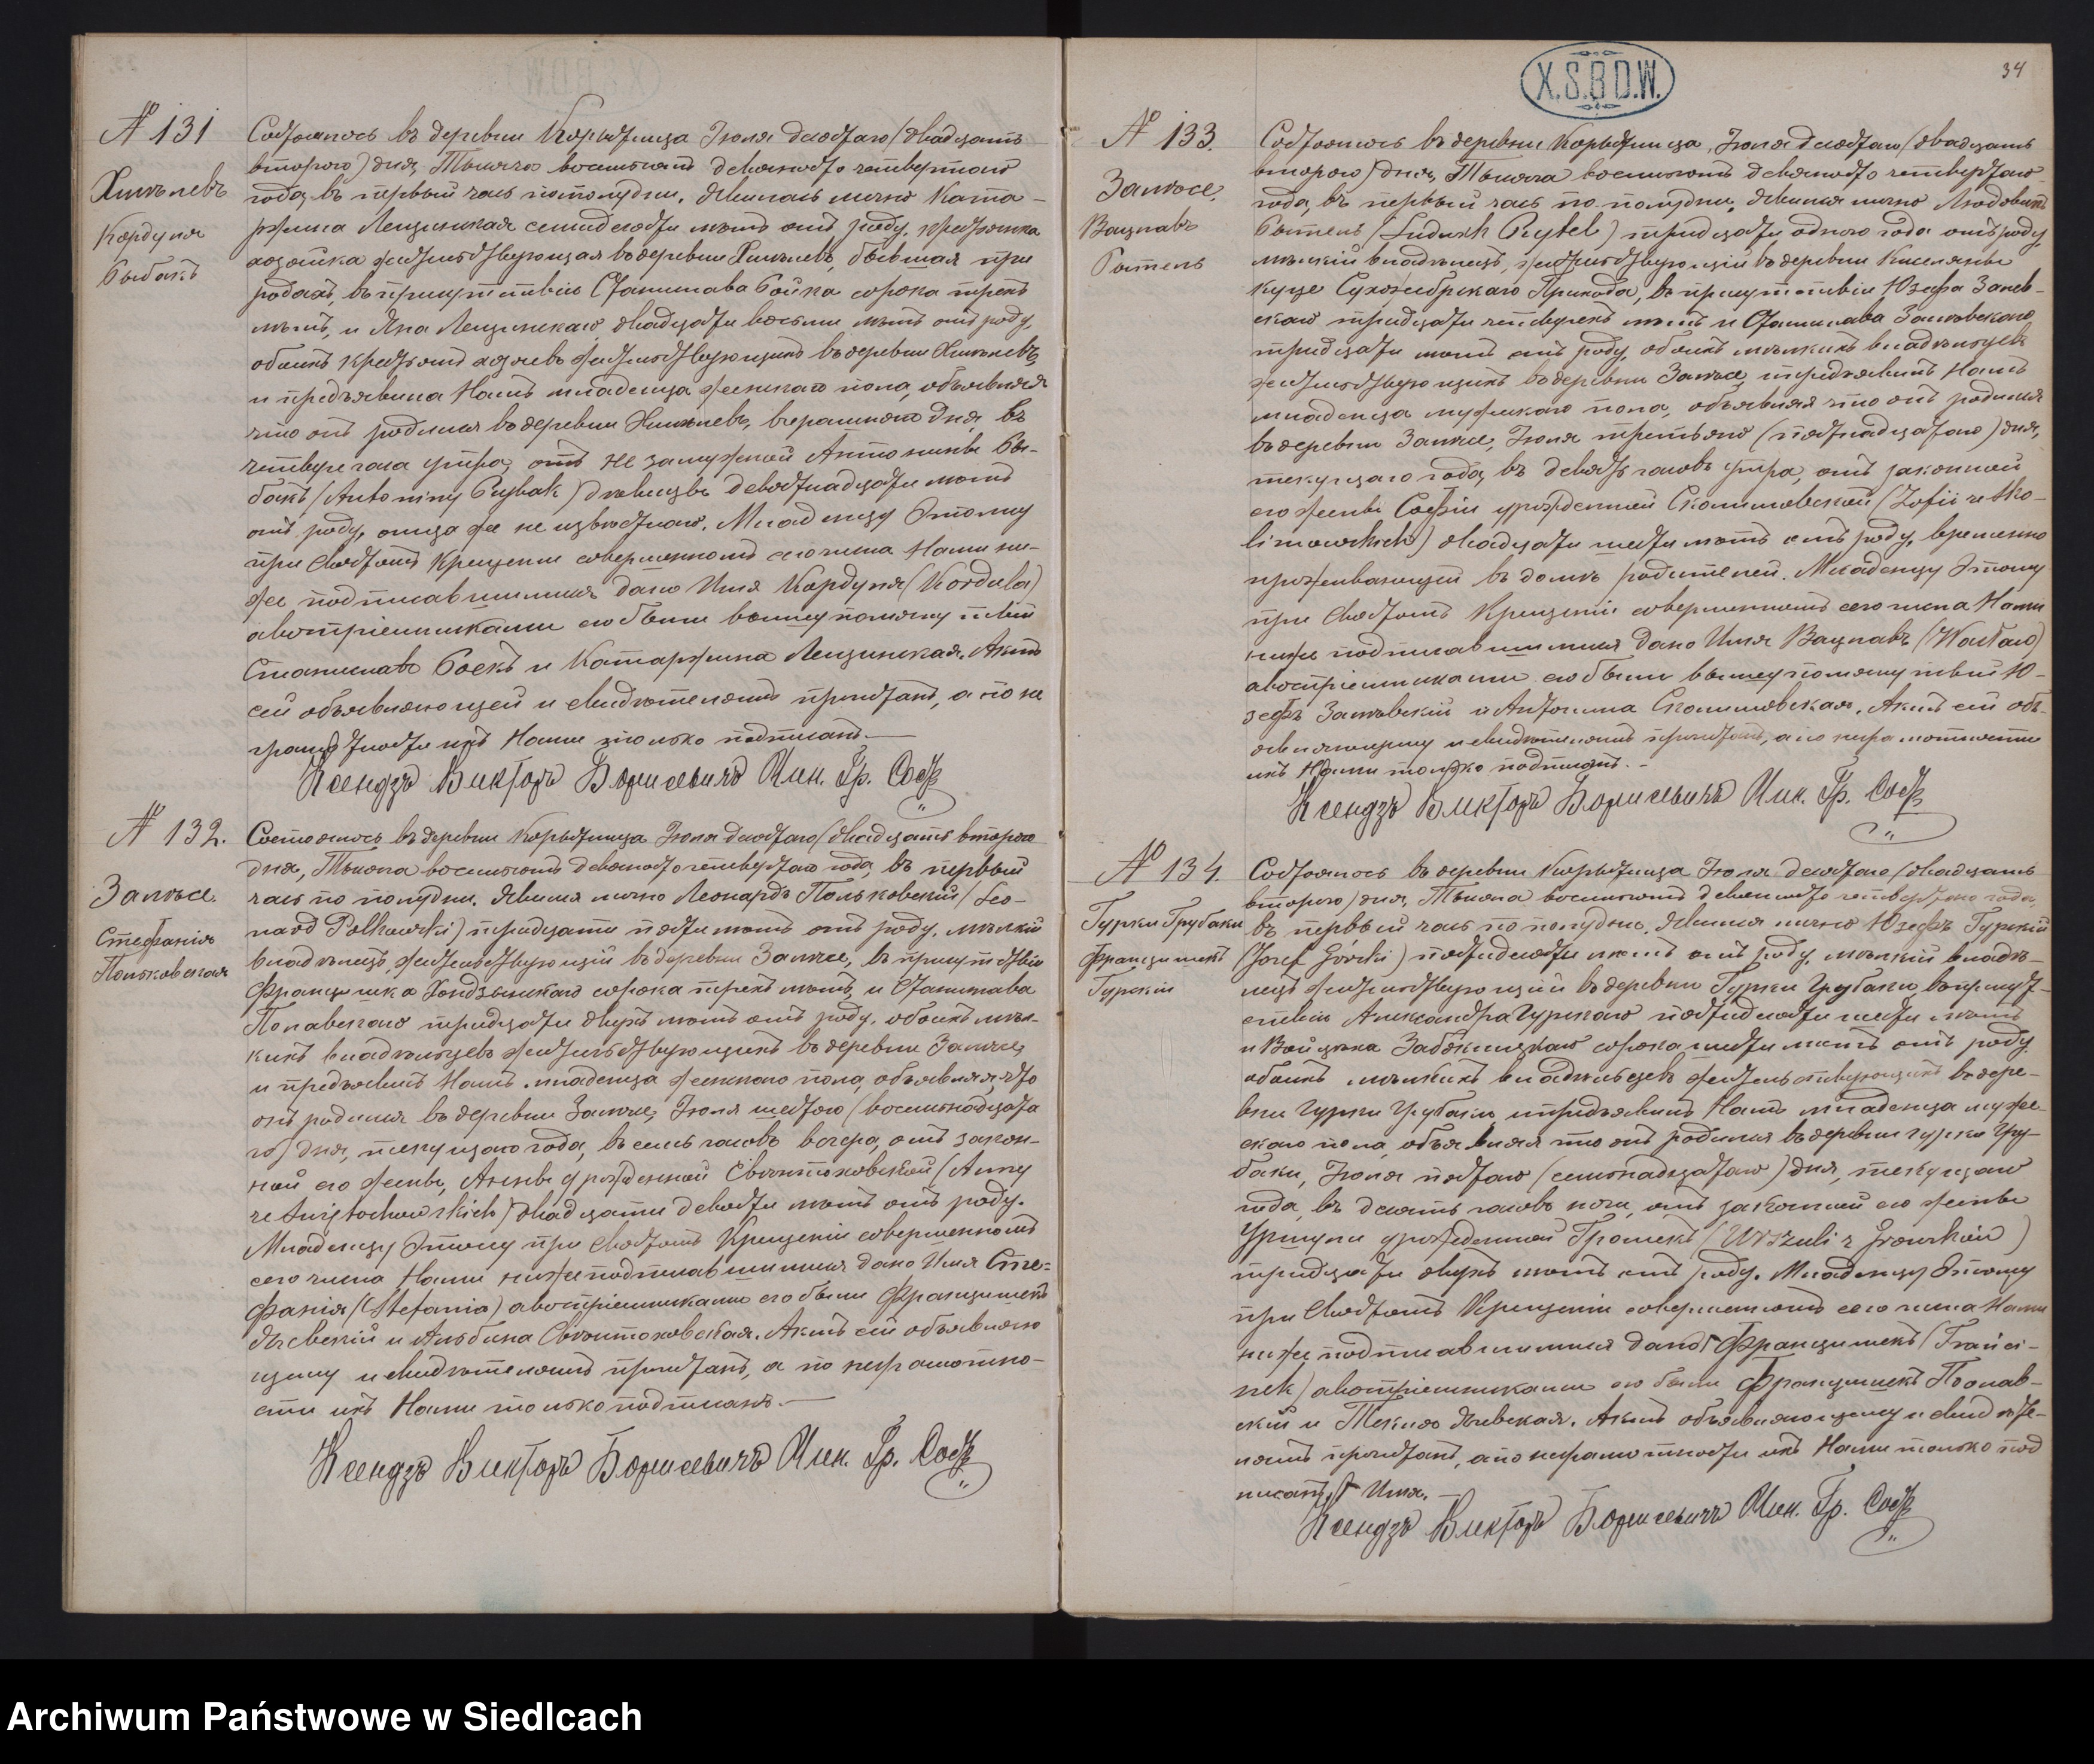 № 131
Хмѣлевъ
Кордуля
Рыбакъ
Состоялось въ деревни Корытница Іюля десятаго (двадцать
втораго) дня, Тысяча восемьсотъ девяносто четвертаго
года, въ первый часъ пополудни. Явилась лично Ката-
ржина Лещинская семидесяти лѣтъ отъ роду, крестьянка
хозяйка жительствующая въ деревни Хмѣлевъ, бывшая при
родахъ, въ присутствіи Станислава Бойка сорока трехъ
лѣтъ, и Яна Лещинскаго двадцати восьми лѣтъ отъ роду,
обоихъ крестьянъ хозяевъ жительствующихъ въ деревни Хмѣлевъ,
и предъявила Намъ младенца женскаго пола, объявляя
что онъ родился въ деревни Хмѣлевъ, вчерашняго дня, въ
четыре часа утра, отъ не замужной Антонины Ры-
бакъ (Antoniny Rybak) дѣвицы девятнадцати лѣтъ
отъ роду, отца же не извѣстнаго. Младенцу этому
при Святомъ Крещеніи совершенномъ сего числа Нами ни-
же подписавшимися дано Имя Кордуля (Kordula)
а воспріемниками его были вышеупомянутый
Станиславъ Боекъ и Катаржина Лещинская. Актъ
сей объявляющей и свидѣтелямъ прочитанъ, а по не
грамотности ихъ Нами только подписанъ.—
Ксендзъ Викторъ Борисевичъ Чин. Гр. Сост
№ 132.
Залѣсе.
Стефанія
Польковская
Состоялось въ деревни Корытница Іюля десятаго (двадцать втораго
дня, Тысяча восемьсотъ девяносто четвертаго года, въ первый
часъ по полудни. Явился лично Леонардъ Польковскій (Leo-
nard Polkowski) тридцати пяти лѣтъ отъ роду, мѣлкій
владѣлецъ, жительствующій въ деревни Залѣсе, въ присутствіи
Францишка сорока трехъ лѣтъ, и Станислава
тридцати двухъ лѣтъ отъ роду, обоихъ мѣл-
кихъ владѣльцевъ жительствующихъ въ деревни Залѣсе,
и предъявилъ Намъ младенца женскаго пола, объявляя что
онъ родился въ деревни Залѣсе, Іюля шестаго (восемнадцата
го) дня, текущаго года, въ семь часовъ вечера, отъ закон-
ной его жены, Анны урожденной Свентоховской (Anny
z Świętochowskich) двадцати девяти лѣтъ отъ роду.
Младенцу этому при Святомъ Крещеніи совершенномъ
сего числа Нами нижеподписавшимися дано Имя Сте-
фанія (Stefania) а воспріемниками его были Францишекъ
и Альбина Свентоховская. Актъ сей объявляю
щему и свидѣтелямъ прочитанъ, а по неграмотно-
сти ихъ Нами только подписанъ.—
Ксендзъ Викторъ Борисевичъ Чин. Гр. Сост
X.S.B D.W.
34
№ 133.
Залѣсе.
Вацлавъ
Рытель
Состоялось въ деревни Корытница, Іюля десятаго (двадцать
втораго) дня, Тысяча восемьсотъ девяносто четвертаго
года, въ первый часъ по полудни, Явился лично Людовикъ
Рытель (Ludwik Rytel) тридцати одного года отъ роду,
мѣлкій владѣлецъ, жительствующій въ деревни
Сухожебрскаго Прихода, въ присутствіи Юзефа Залев-
скаго тридцати четырехъ лѣтъ и Станислава Залѣвскаго
тридцати лѣтъ отъ роду, обоихъ мѣлкихъ владѣльцевъ
жительствующихъ въ деревни Залѣсе, и предъявилъ Намъ
младенца мужскаго пола, объявляя что онъ родился
въ деревни Залѣсе, Іюля третьяго (пятнадцатаго) дня,
текущаго года, въ девять часовъ утра, отъ законной
его жены Софіи урожденной Скольмовской (Zofii z Sko-
limowskich) двадцати шести лѣтъ отъ роду, временно
проживающей въ домѣ родителей. Младенцу этому
при Святомъ Крещеніи совершенномъ сего числа Нами
ниже подписавшимися дано Имя Вацлавъ (Wacław)
а воспріемниками его были вышеупомянутый Ю-
зефъ Залѣвскій и Антонина Скольмовская. Актъ сей объ-
являющему и свидѣтелямъ прочитанъ, а по неграмотности
ихъ Нами только подписанъ.-
Ксендзъ Викторъ Борисевичъ Чин. Гр. Сост
№ 134.
Гурки Грубаки
Францишекъ
Гурскій
Состоялось въ деревни Корытница Іюля десятаго (двадцать
втораго) дня, Тысяча восемьсотъ девяносто четвертаго года,
въ первый часъ по полудни, Явился лично Юзефъ Гурскій
(Józef Górski) пятидесяти лѣтъ отъ роду, мѣлкій владѣ-
лецъ жительствующій въ деревни Гурки Грубаки въ присут-
ствіи Александра Гурскаго пятидесяти шести лѣтъ
и Войцѣха сорока шести лѣтъ отъ роду
обоихъ мѣлкихъ владѣльцевъ жительствующихъ въ дере-
вни Гурки Грубаки и предъявилъ Намъ младенца муж-
скаго пола, объявляя что онъ родился въ деревни Гурки Гру-
баки, Іюля пятаго (семнадцатаго) дня, текущаго
года, въ десять часовъ ночи, отъ законной его жены
Уршули урожденной (Urszuli z
тридцати двухъ лѣтъ отъ роду. Младенцу этому
при Святомъ Крещеніи совершенномъ сего числа Нами
ниже подписавшимися дано Францишекъ (Franci-
szek) а воспріемниками его были Францишекъ
скій и Текля Актъ объявляющему и свидѣте-
лямъ прочитанъ, а по неграмотности ихъ Нами только под
писанъ. Имя.—
Ксендзъ Викторъ Борисевичъ Чин. Гр. Сост
Archiwum Państwowe w Siedlcach